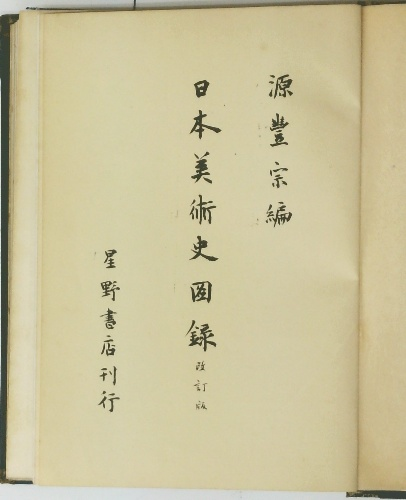 源豐宗編
日本美術史図録 改訂版
星野書店刊行